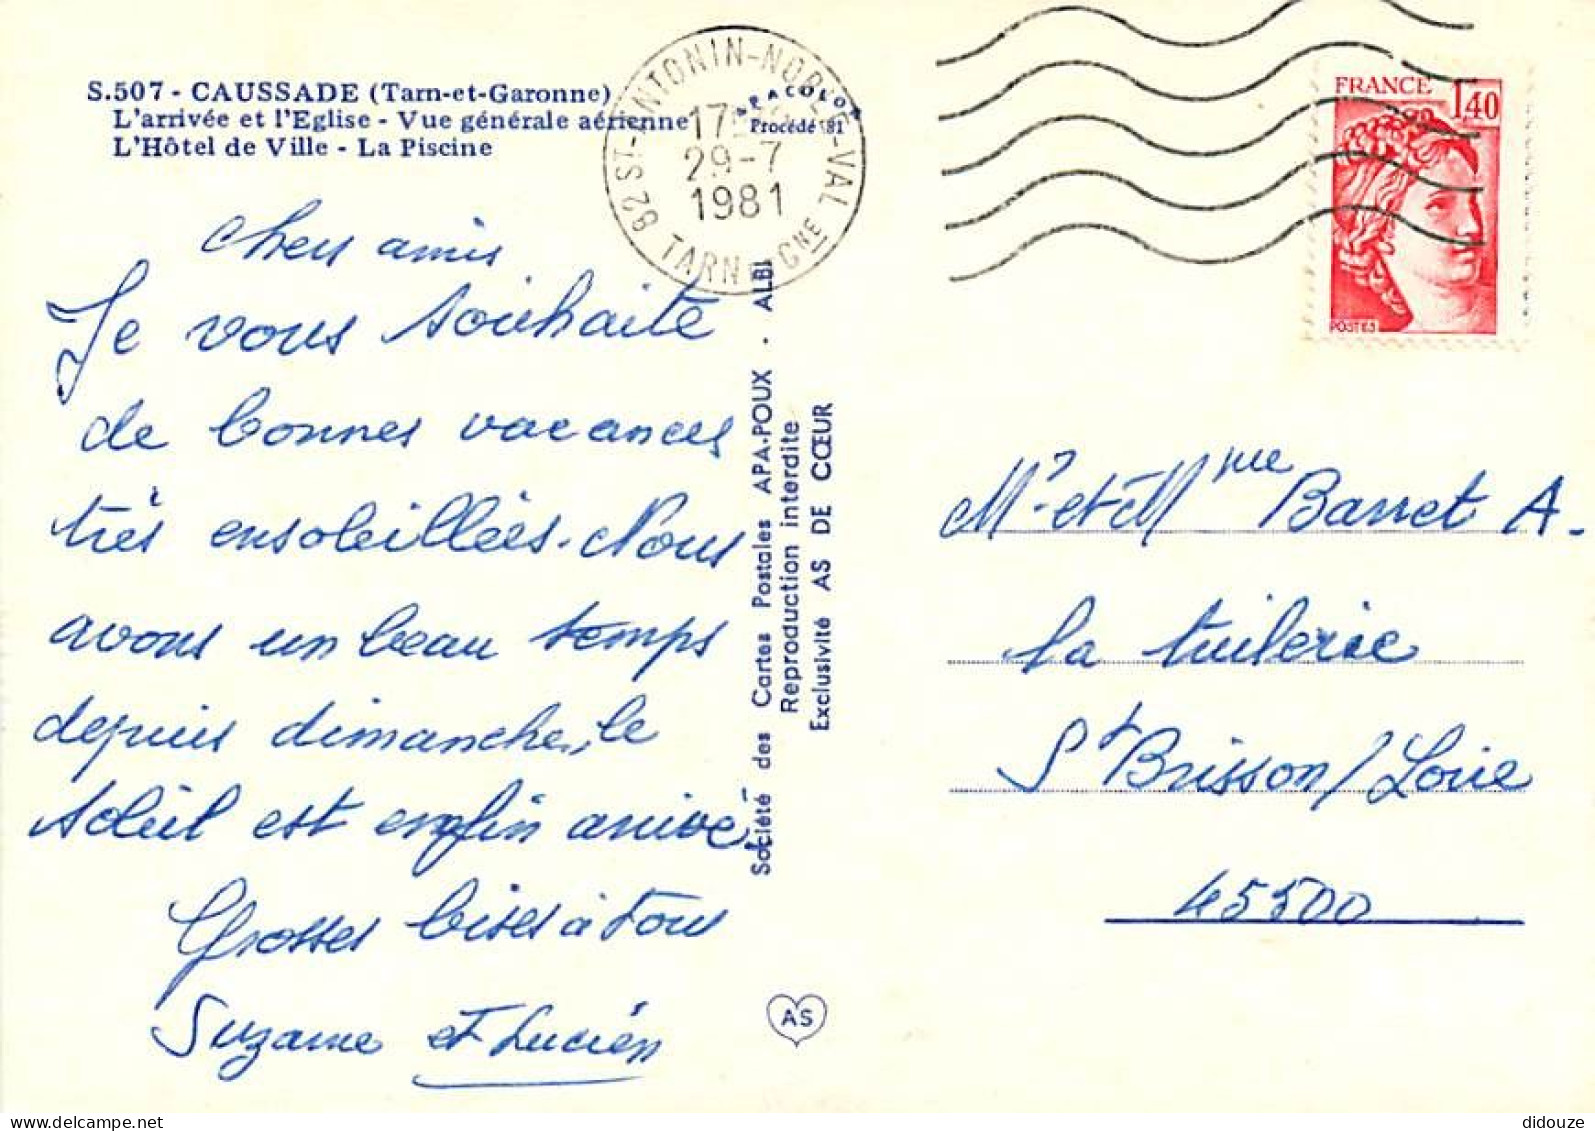 S.507 - CAUSSADE (Tarn-et-Garonne)
L'arrivée et l'Eglise - Vue générale aérienne
L'Hôtel de Ville - La Piscine
Procédé 81
82 ST-ANTONIN-NOBLE-VAL
29-7
1981
TARN-ET-GNE
FRANCE
1,40
POSTES
Chers amis
Je vous souhaite
de bonnes vacances
très ensoleillées. Nous
avons un beau temps
depuis dimanche, le
soleil est enfin arrivé.
Grosses bises à tous
Suzanne et Lucien
Société des Cartes Postales APA-POUX - ALBI
Reproduction interdite
Exclusivité AS DE CŒUR
AS
Mr et Mme Barret A.
La tuilerie
St Brisson/Loire
45500
didouze